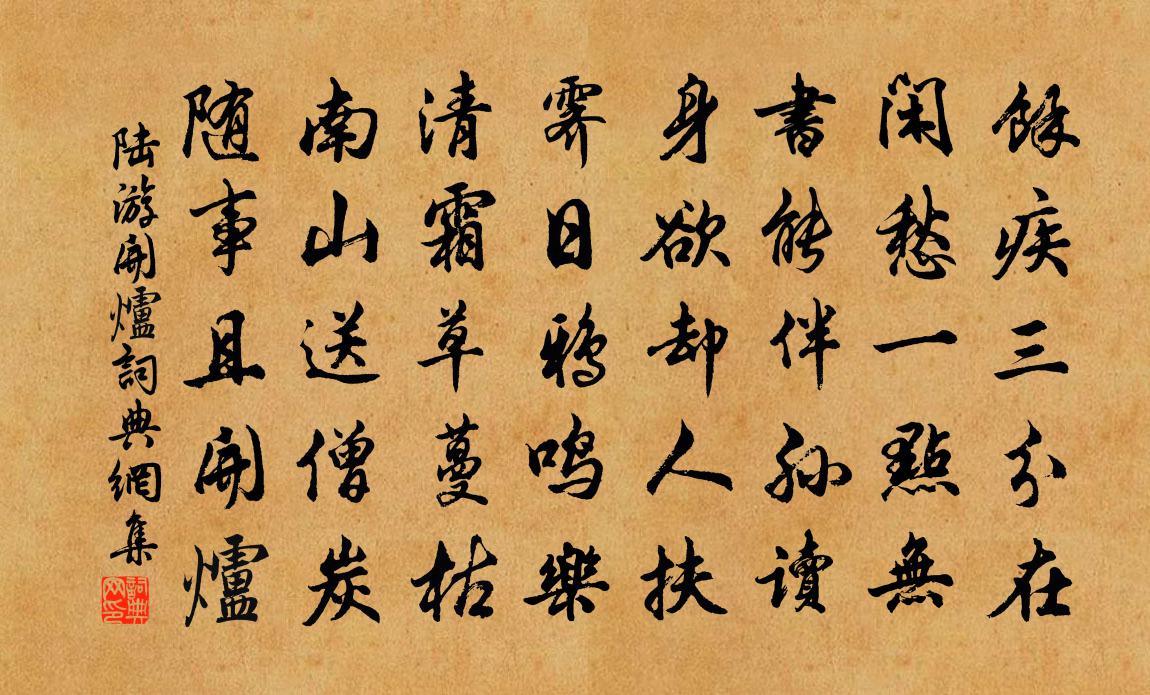 餘疾三分在
閑愁一點無
書能伴孫讀
身欲却人扶
霽日鴉鳴樂
清霜草蔓枯
南山送僧炭
随事且開爐
陸游開爐詞典網集
詞典网印